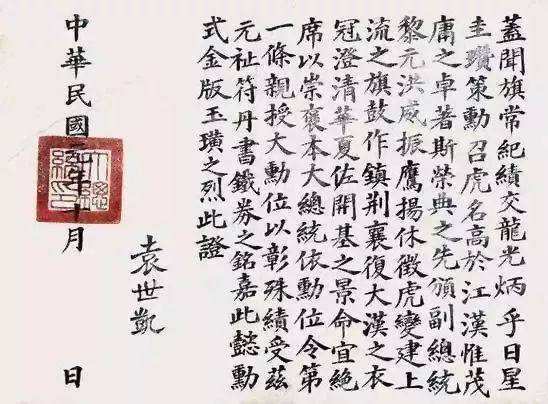 蓋聞旗常紀績交龍光炳乎日星
圭瓚策勳召虎名高於江漢惟茂
庸之卓著斯榮典之先頒副總統
黎元洪威振鷹揚休徵虎變建上
流之旗鼓作鎮荊襄復大漢之衣
冠澄清華夏佐開基之景命宜絕
席以崇襃本大總統依勳位令第
一條親授大勳位以彰殊績受茲
元祉符丹書鐵券之銘嘉此懿勳
式金版玉璜之烈此證
袁世凱
中華民國年十月 日